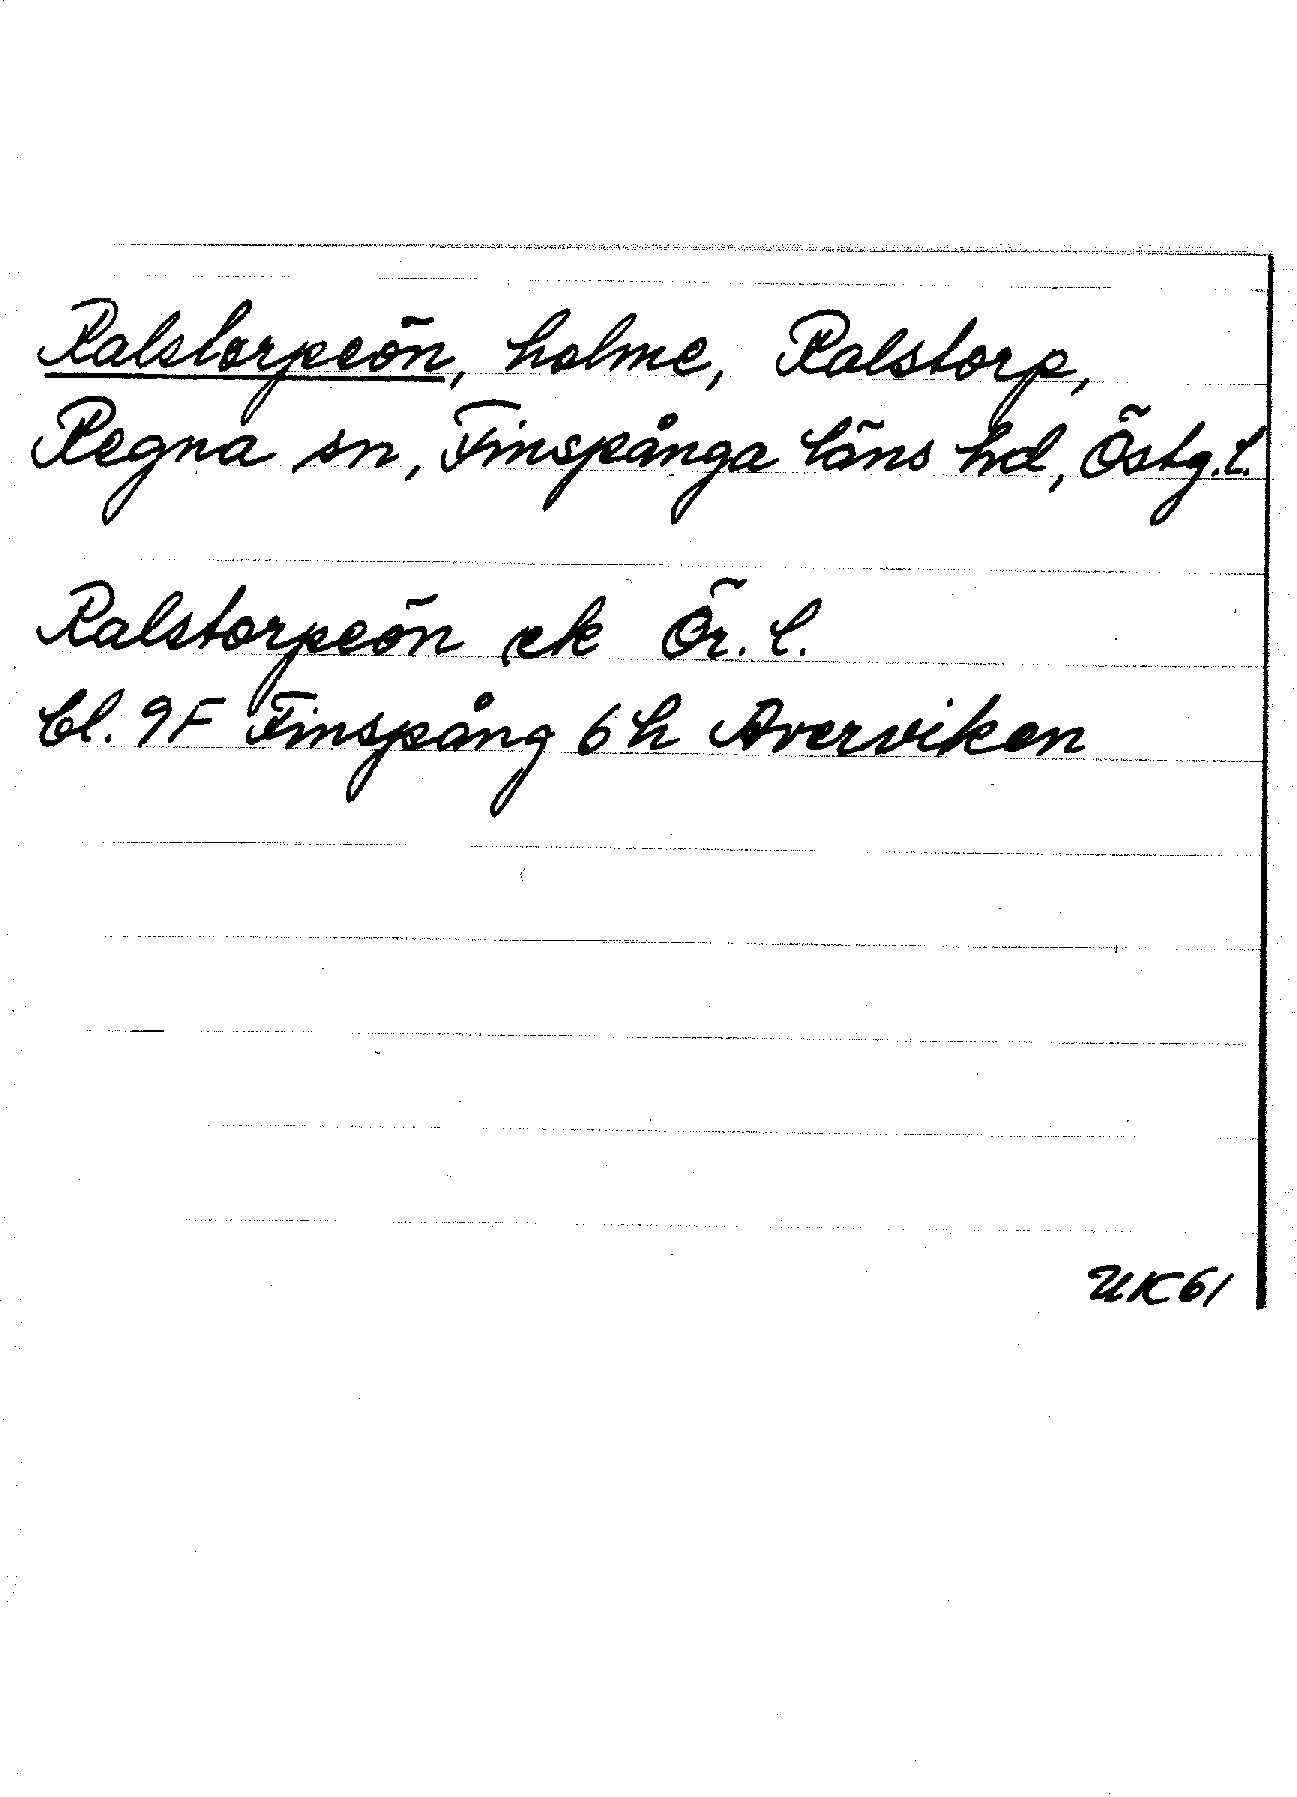 Ralstorpeön, holme, Ralstorp,
Regna sn, Finspånga läns hd, Östg.l.
Ralstorpeön ek Ör.l.
bl. 9F Finspång 6h Avervikan
UK61